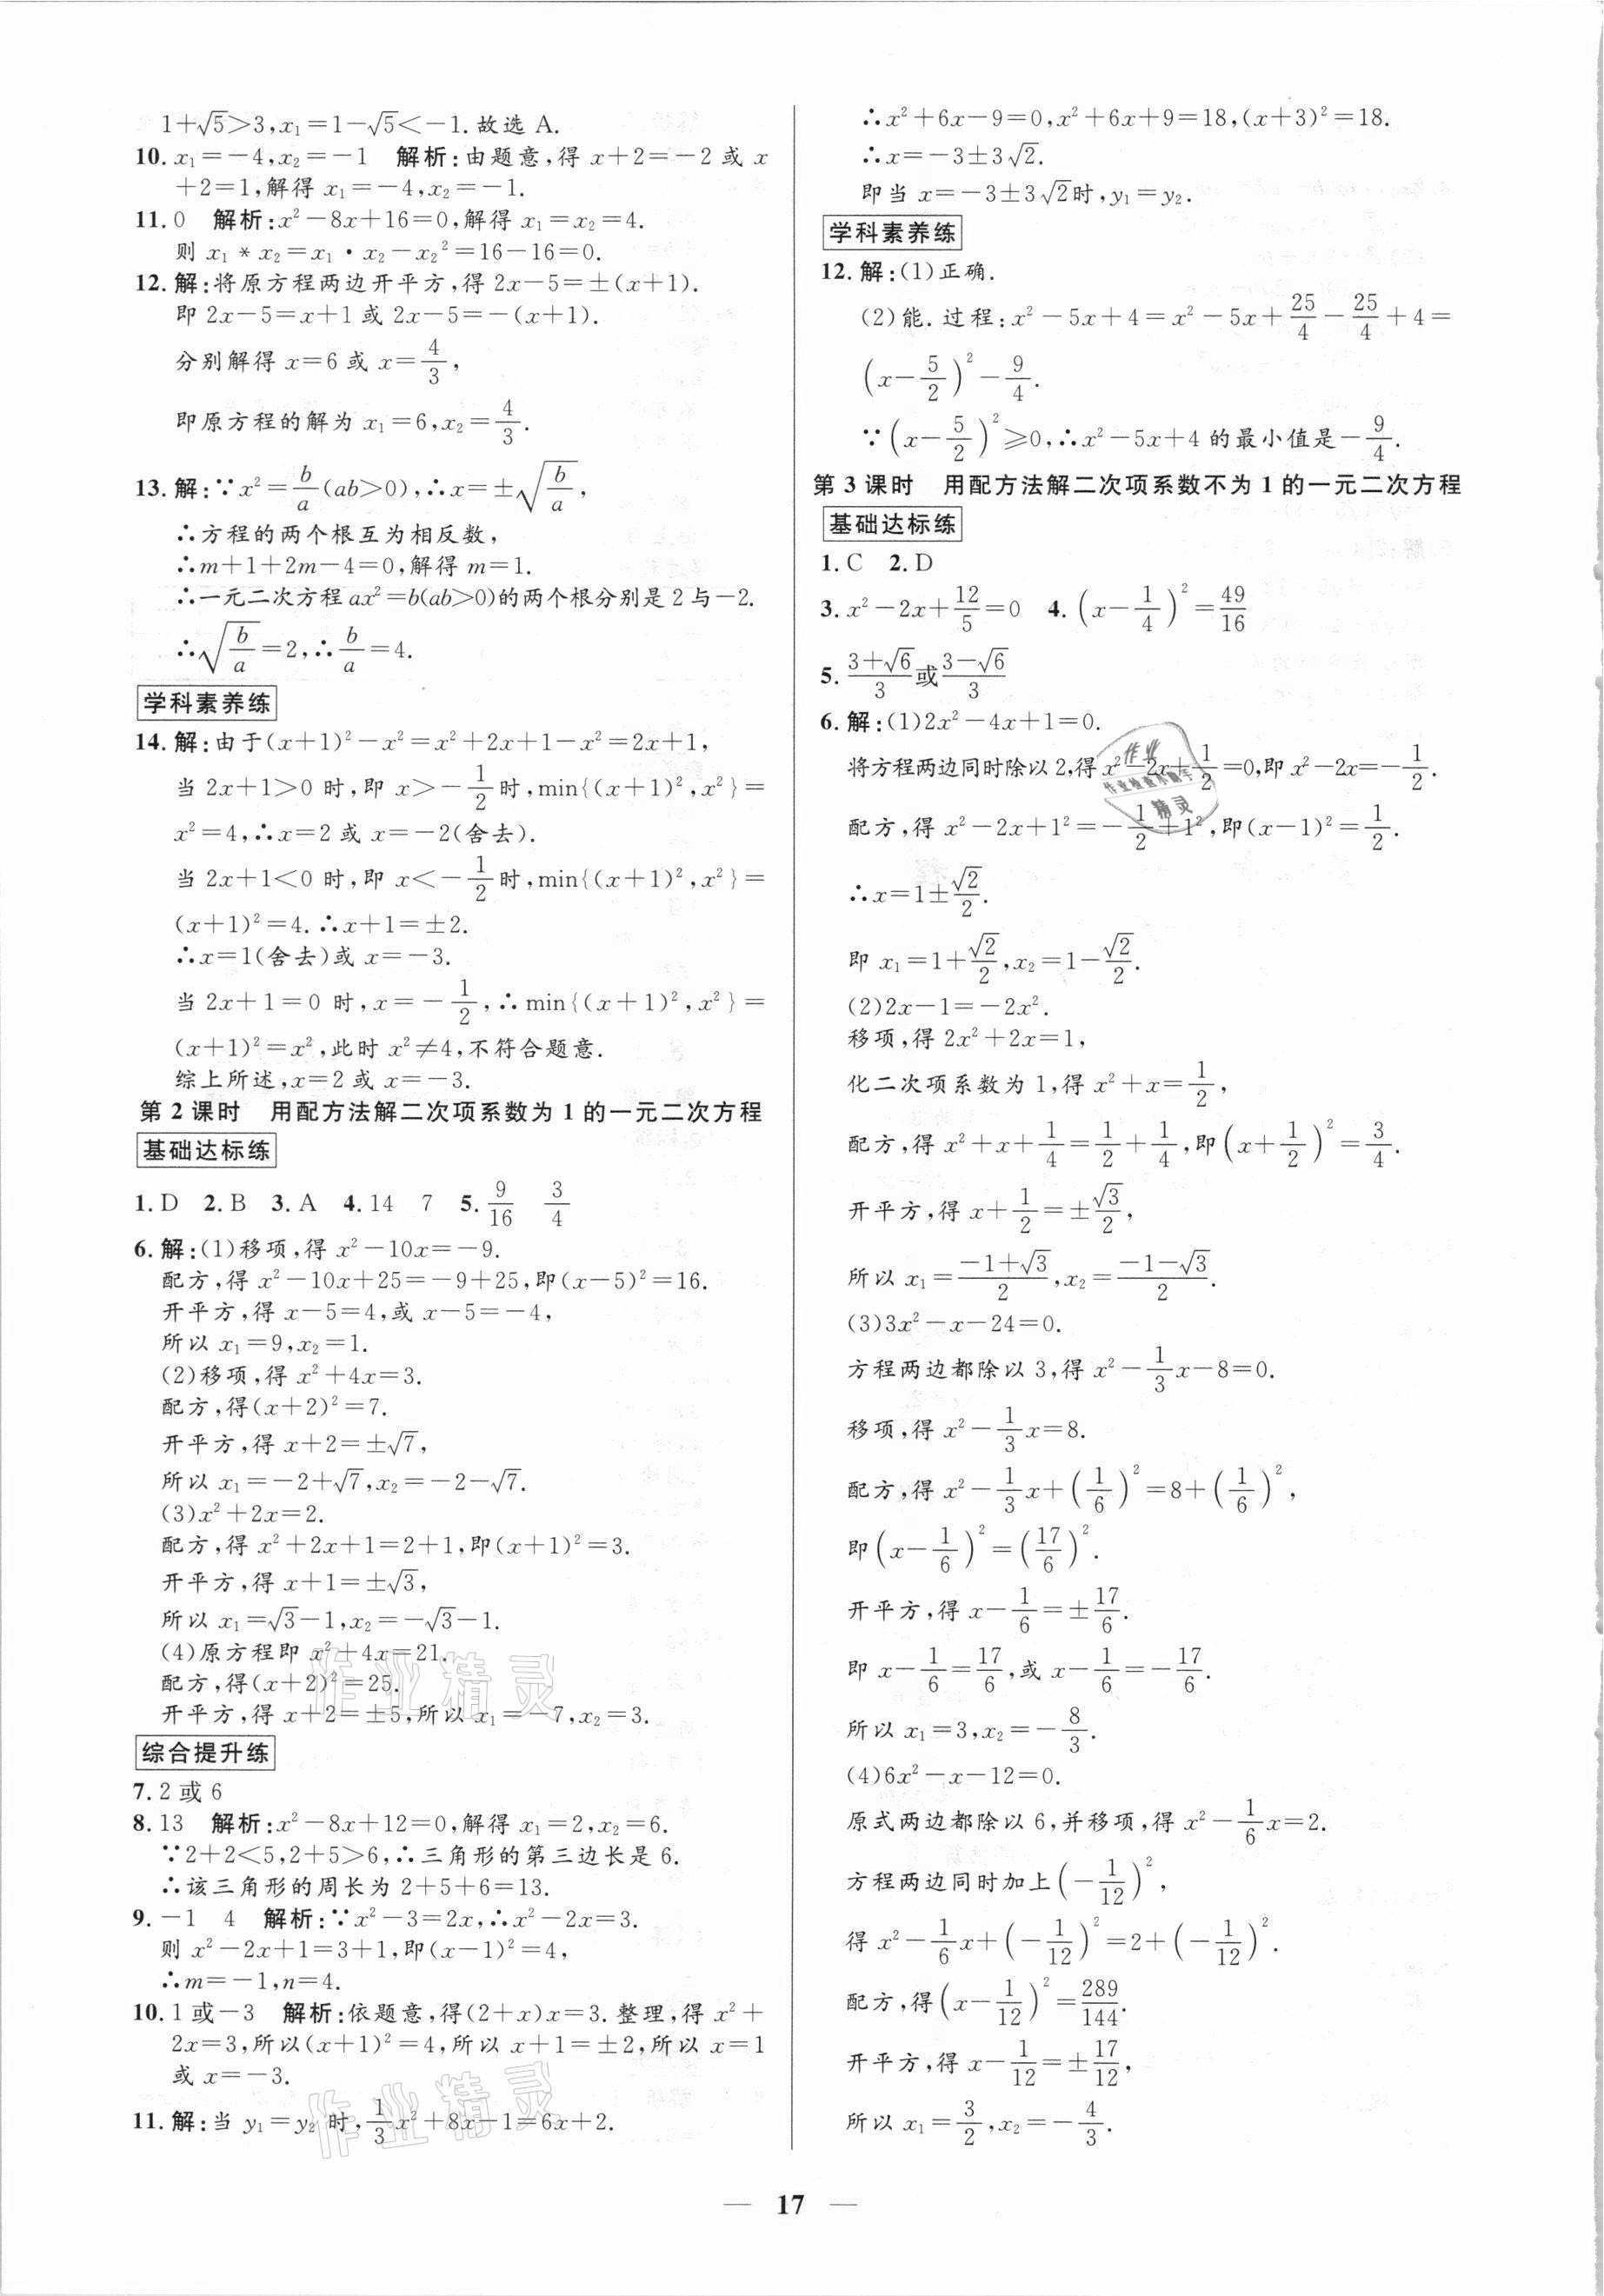 1+√5>3,x₁=1-√5<-1.故选 A.
10.x₁=-4,x₂=-1 解析:由题意,得 x+2=-2 或 x
+2=1,解得 x₁=-4,x₂=-1.
11.0 解析:x²-8x+16=0,解得 x₁=x₂=4.
则 x₁*x₂=x₁·x₂-x₂²=16-16=0.
12.解:将原方程两边开平方,得 2x-5=±(x+1).
即 2x-5=x+1 或 2x-5=-(x+1).
分别解得 x=6 或 x=4/3,
即原方程的解为 x₁=6,x₂=4/3.
13.解:∵x²=b/a(ab>0),∴x=±√(b/a),
∴方程的两个根互为相反数,
∴m+1+2m-4=0,解得 m=1.
∴一元二次方程 ax²=b(ab>0)的两个根分别是 2 与-2.
∴√(b/a)=2,∴b/a=4.
学科素养练
14.解:由于(x+1)²-x²=x²+2x+1-x²=2x+1,
当 2x+1>0 时,即 x>-1/2时,min{(x+1)²,x²}=
x²=4,∴x=2 或 x=-2(舍去).
当 2x+1<0 时,即 x<-1/2时,min{(x+1)²,x²}=
(x+1)²=4.∴x+1=±2.
∴x=1(舍去)或 x=-3.
当 2x+1=0 时,x=-1/2,∴min{(x+1)²,x²}=
(x+1)²=x²,此时 x²≠4,不符合题意.
综上所述,x=2 或 x=-3.
第 2 课时 用配方法解二次项系数为 1 的一元二次方程
基础达标练
1.D 2.B 3.A 4.14 7 5.9/16 3/4
6.解:(1)移项,得 x²-10x=-9.
配方,得 x²-10x+25=-9+25,即(x-5)²=16.
开平方,得 x-5=4,或 x-5=-4,
所以 x₁=9,x₂=1.
(2)移项,得 x²+4x=3.
配方,得(x+2)²=7.
开平方,得 x+2=±√7,
所以 x₁=-2+√7,x₂=-2-√7.
(3)x²+2x=2.
配方,得 x²+2x+1=2+1,即(x+1)²=3.
开平方,得 x+1=±√3,
所以 x₁=√3-1,x₂=-√3-1.
(4)原方程即 x²+4x=21.
配方,得(x+2)²=25.
开平方,得 x+2=±5,所以 x₁=-7,x₂=3.
综合提升练
7.2 或 6
8.13 解析:x²-8x+12=0,解得 x₁=2,x₂=6.
∵2+2<5,2+5>6,∴三角形的第三边长是 6.
∴该三角形的周长为 2+5+6=13.
9.-1 4 解析:∵x²-3=2x,∴x²-2x=3.
则 x²-2x+1=3+1,即(x-1)²=4,
∴m=-1,n=4.
10.1 或-3 解析:依题意,得(2+x)x=3.整理,得 x²+
2x=3,所以(x+1)²=4,所以 x+1=±2,所以 x=1
或 x=-3.
11.解:当 y₁=y₂ 时,1/3x²+8x-1=6x+2.
∴x²+6x-9=0,x²+6x+9=18,(x+3)²=18.
∴x=-3±3√2.
即当 x=-3±3√2时,y₁=y₂.
学科素养练
12.解:(1)正确.
(2)能.过程:x²-5x+4=x²-5x+25/4-25/4+4=
(x-5/2)²-9/4.
∵(x-5/2)²≥0,∴x²-5x+4 的最小值是-9/4.
第 3 课时 用配方法解二次项系数不为 1 的一元二次方程
基础达标练
1.C 2.D
3.x²-2x+12/5=0 4.(x-1/4)²=49/16
5.(3+√6)/3或(3-√6)/3
6.解:(1)2x²-4x+1=0.
将方程两边同时除以 2,得 x²-2x+1/2=0,即 x²-2x=-1/2.
配方,得 x²-2x+1²=-1/2+1²,即(x-1)²=1/2.
∴x=1±√2/2.
即 x₁=1+√2/2,x₂=1-√2/2.
(2)2x-1=-2x².
移项,得 2x²+2x=1,
化二次项系数为 1,得 x²+x=1/2,
配方,得 x²+x+1/4=1/2+1/4,即(x+1/2)²=3/4.
开平方,得 x+1/2=±√3/2,
所以 x₁=(-1+√3)/2,x₂=(-1-√3)/2.
(3)3x²-x-24=0.
方程两边都除以 3,得 x²-1/3x-8=0.
移项,得 x²-1/3x=8.
配方,得 x²-1/3x+(1/6)²=8+(1/6)²,
即(x-1/6)²=(17/6)².
开平方,得 x-1/6=±17/6.
即 x-1/6=17/6,或 x-1/6=-17/6.
所以 x₁=3,x₂=-8/3.
(4)6x²-x-12=0.
原式两边都除以 6,并移项,得 x²-1/6x=2.
方程两边同时加上(-1/12)²,
得 x²-1/6x+(-1/12)²=2+(-1/12)².
配方,得(x-1/12)²=289/144.
开平方,得 x-1/12=±17/12,
所以 x₁=3/2,x₂=-4/3.
作业
精灵
作业精灵
作业精灵
— 17 —